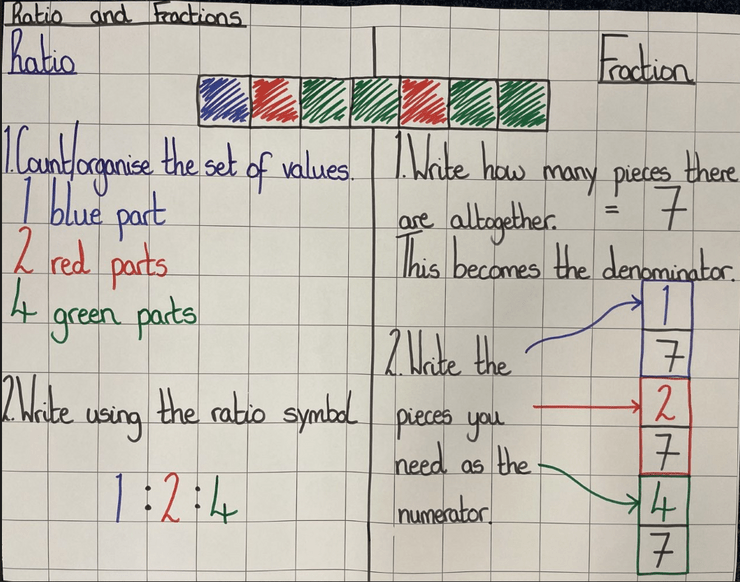 Ratio and Fractions
Ratio
1.Count/organise the set of values.
1 blue part
2 red parts
4 green parts
2.Write using the ratio symbol
1:2:4
Fraction
1.Write how many pieces there
are altogether. = 7
This becomes the denominator.
2.Write the
pieces you
need as the
numerator.
1
7
2
7
4
7